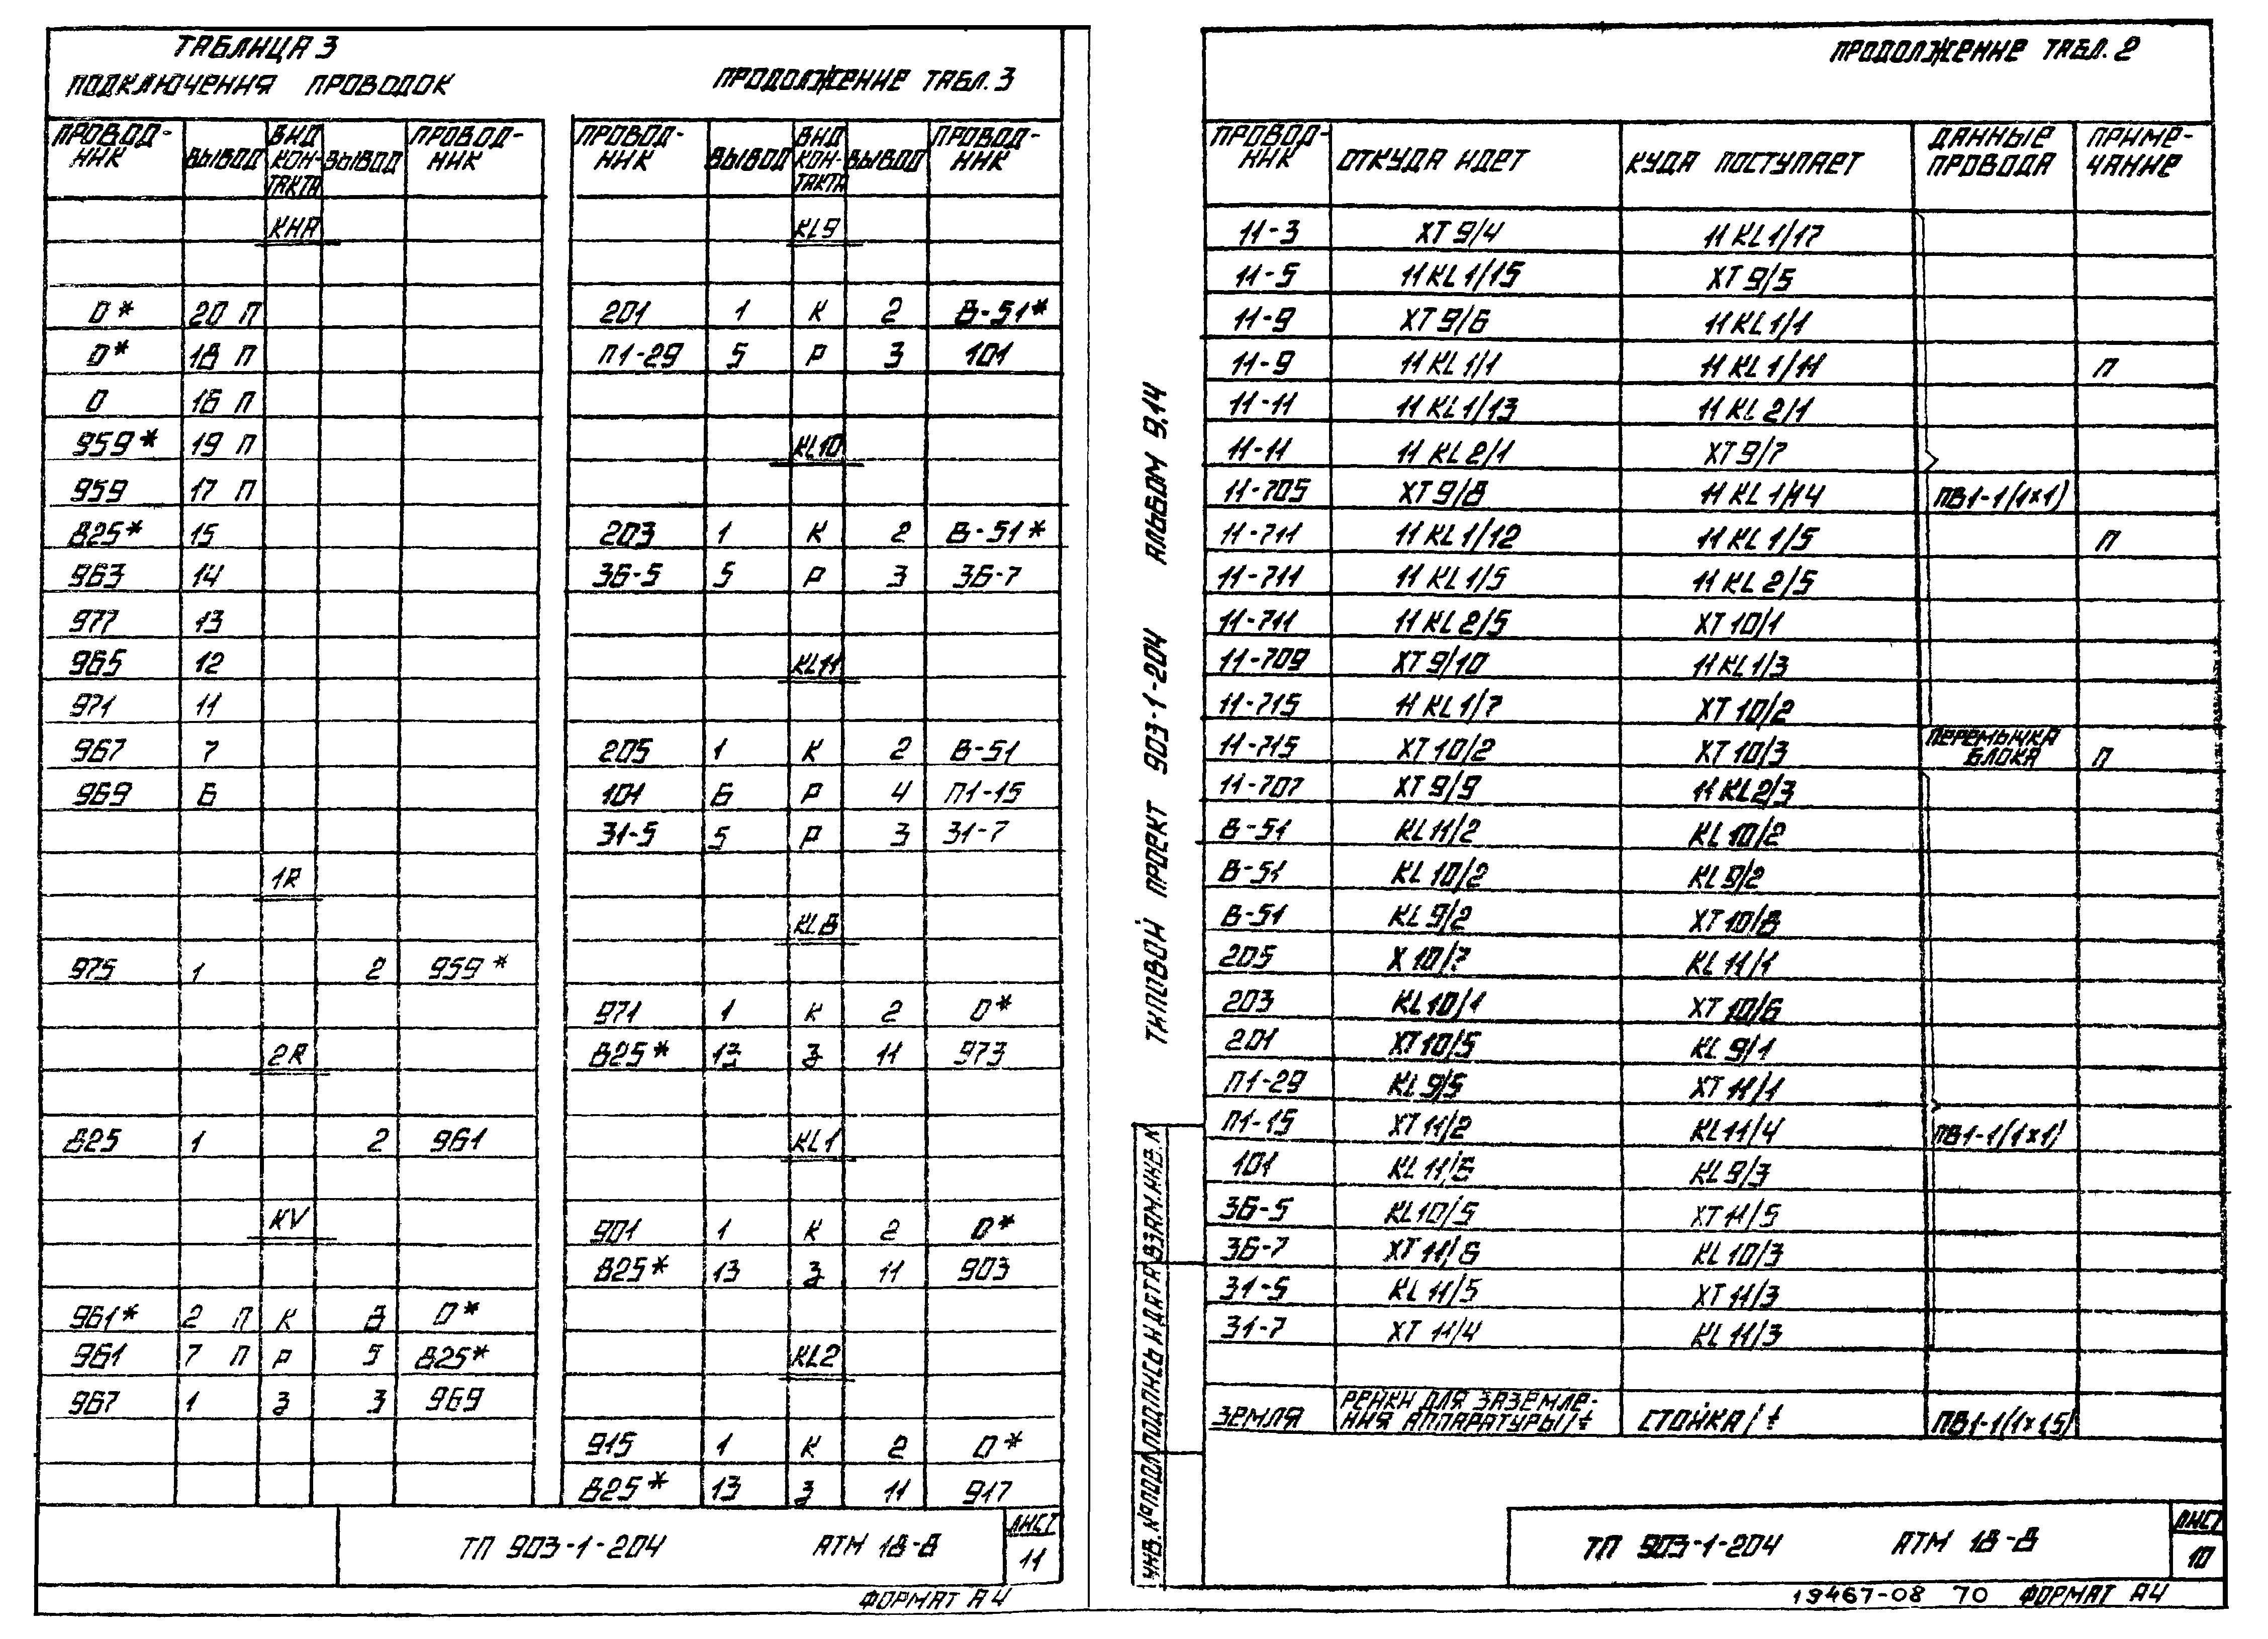 ТАБЛИЦА 3
ПОДКЛЮЧЕНИЯ ПРОВОДОК
ПРОДОЛЖЕНИЕ ТАБЛ. 3
ПРОВОД-НИК ВЫВОД ВИД КОН-ТАКТА ВЫВОД ПРОВОД-НИК
КНА
0* 20 П
0* 18 П
0 16 П
959* 19 П
959 17 П
825* 15
963 14
977 13
965 12
971 11
967 7
969 6
1R
975 1 2 959*
2R
825 1 2 961
KV
961* 2 П К 8 0*
961 7 П Р 5 825*
967 1 З 3 969
ПРОВОД-НИК ВЫВОД ВИД КОН-ТАКТА ВЫВОД ПРОВОД-НИК
KL9
201 1 К 2 В-51*
П1-29 5 Р 3 101
KL10
203 1 К 2 В-51*
3Б-5 5 Р 3 3Б-7
KL11
205 1 К 2 В-51
101 6 Р 4 П1-15
31-5 5 Р 3 31-7
KL8
971 1 К 2 0*
825* 13 З 11 973
KL1
901 1 К 2 0*
825* 13 З 11 903
KL2
915 1 К 2 0*
825* 13 З 11 917
ТП 903-1-204 АТМ 18-8
ЛИСТ
11
ФОРМАТ А4
ПРОДОЛЖЕНИЕ ТАБЛ. 2
ПРОВОД-НИК ОТКУДА ИДЕТ КУДА ПОСТУПАЕТ ДАННЫЕ ПРОВОДА ПРИМЕ-ЧАНИЕ
11-3 ХТ 9/4 11 KL 1/17
11-5 11 KL 1/15 ХТ 9/5
11-9 ХТ 9/6 11 KL 1/1
11-9 11 KL 1/1 11 KL 1/11 П
11-11 11 KL 1/13 11 KL 2/1
11-11 11 KL 2/1 ХТ 9/7
11-705 ХТ 9/8 11 KL 1/14 ПВ1-1(1×1)
11-711 11 KL 1/12 11 KL 1/5 П
11-711 11 KL 1/5 11 KL 2/5
11-711 11 KL 2/5 ХТ 10/1
11-709 ХТ 9/10 11 KL 1/3
11-715 11 KL 1/7 ХТ 10/2
11-715 ХТ 10/2 ХТ 10/3 ПЕРЕМЫЧКА БЛОКА П
11-707 ХТ 9/9 11 KL 2/3
В-51 KL 11/2 KL 10/2
В-51 KL 10/2 KL 9/2
В-51 KL 9/2 ХТ 10/8
205 Х 10/7 KL 11/1
203 KL 10/1 ХТ 10/6
201 ХТ 10/5 KL 9/1
П1-29 KL 9/5 ХТ 11/1
П1-15 ХТ 11/2 KL 11/4 ПВ1-1(1×1)
101 KL 11/6 KL 9/3
3Б-5 KL 10/5 ХТ 11/5
3Б-7 ХТ 11/6 KL 10/3
31-5 KL 11/5 ХТ 11/3
31-7 ХТ 11/4 KL 11/3
ЗЕМЛЯ РЕЙКИ ДЛЯ ЗАЗЕМЛЕ-НИЯ АППАРАТУРЫ/⏚ СТОЙКА/⏚ ПВ1-1(1×1,5)
ТИПОВОЙ ПРОЕКТ 903-1-204 АЛЬБОМ 9.14
ИНВ. № ПОДЛ. ПОДПИСЬ И ДАТА ВЗАМ ИНВ. №
ТП 903-1-204 АТМ 18-8
ЛИСТ
10
19467-08 70 ФОРМАТ А4